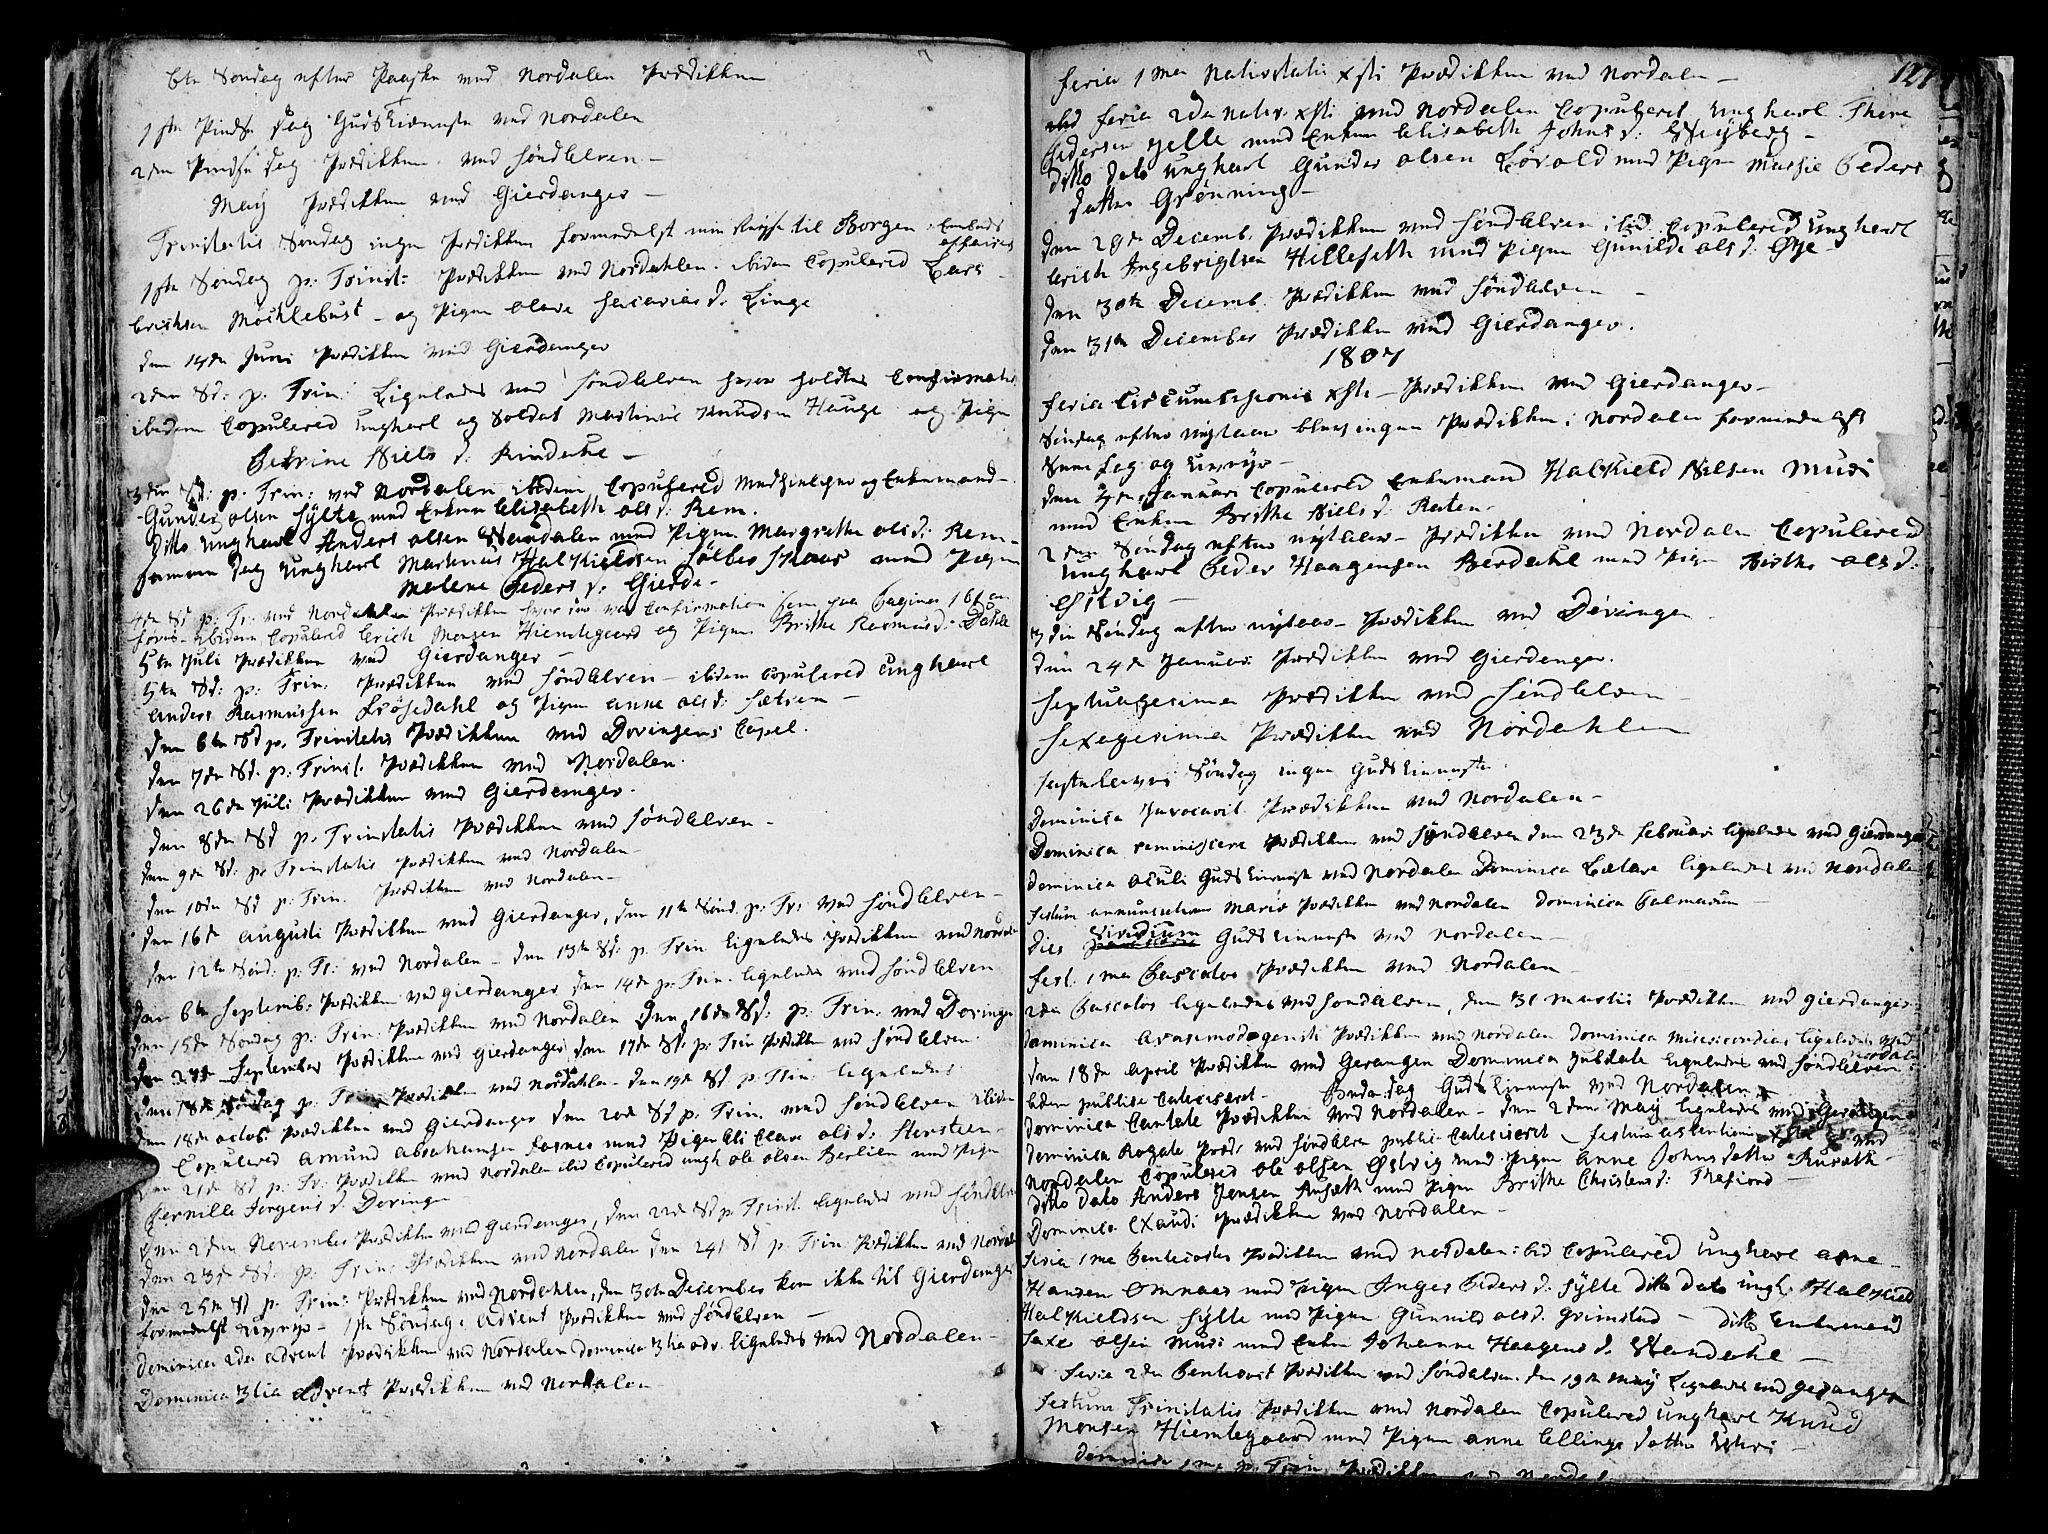 6te Søndag efter Paaske ved Nordalen Prædikken
1ste Pindse Dag Gudstieneste ved Nordalen
2den Pindse Dag Prædikken ved Søndelven –
May Prædikken ved Gierdanger –
Trinitatis Søndag ingen Prædikken formedelst min Reyse til Borgen i Embeds
affairer
1ste Søndag p: Trinit: Prædikken ved Nordahlen. ibidem Copulered Lars
Erichsen Mochlebust – og Pigen Olave Sacarias d: Linge
den 14de Juni Prædikken ved Gierdanger
2den Sd: p: Trin: Ligeledes ved Søndelven hvor holdtes Confirmation
ibidem Copulered Ungkarl og Soldat Martinus Knudsen Hauge og Pigen
Petrine Niels d: Rindahl –
3die Sd: p: Trin: ved Nordalen ibidem Copulered Medhielper og Enkemand –
Gunder Olsen Sylte med Enken Elisabeth Ols d: Rem.
Ditto Ungkarl Anders Olsen Standalen med Pigen Margrethe Ols d: Rem –
samme Dag Ungkarl Martinus Halkieldsen Sølbergskaar med Pigen
Malene Peders d: Gierde –
4de Sd p: Tr: ved Nordahlen Prædikken hvor der var Confirmation see paa Pagina 161
foran – ibidem Copulered Erich Monsen Hiemlegaard og Pigen Brithe Rasmus d: Dahle
5te Juli Prædikken ved Gierdanger –
5te Sd: p: Trin: Prædikken ved Søndelven – ibidem Copulered Ungkarl
Anders Rasmussen Frøsedahl og Pigen Anne Ols d: Sætren –
den 6te Sd p. Trinitatis Prædikken ved Døvingens Capel.
den 7de Sd. p: Trinit. Prædikken ved Nordalen.
den 26de Juli Prædikken ved Gierdanger.
den 8de Sd p. Trinitatis Prædikken ved Søndelven –
den 9de Sd: p: Trinitatis Prædikken ved Nordalen –
den 10de Sd p: Trin. Prædikken ved Nordalen –
den 16de Augusti Prædikken ved Gierdanger, den 11te Sønd. p: Tr: ved Søndelven –
den 12te Sønd: p: Tr: ved Nordalen – den 13de Sd: p. Trin ligeledes Prædikken ved Nordalen
den 6te Septemb: Prædikken ved Gierdanger den 14de p: Trin. ligeledes ved Søndelven
den 15de Søndag p: Trin: Prædikken ved Nordalen den 16de Sd: p: Trin: ved Døvingen
den 27de September Prædikken ved Gierdanger den 17de Sd: p: Trin Prædikken ved Søndelven
den 18de Søndag p: Trin Prædikken ved Nordahlen – den 19de Sd p: Trin: ligeledes
den 18de Octob: Prædikken ved Gierdanger den 20de Sd p: Trin. ved Søndelven ibidem
Copulered Amund Abrahamsen Fosnes med Pigen Eli Clare Ols d: Horsteen –
den 21de Sd p: Tr: Prædikken ved Nordalen ibid Copulered Ungk Ole Olsen Berlien med Pigen
Pernille Jørgens d: Døving –
den 2den November Prædikken ved Gierdanger, den 22de Sd p: Trinit. ligeledes ved Søndelven
den 23de Sd: p: Trin: Prædikken ved Nordalen den 24de Sd p: Trin: Prædikken ved Nordalen
den 25de Sd p: Trin: Prædikken ved Nordahlen, den 30te December kom ikke til Gierdanger
formedelst Uveyr – 1ste Søndag i Advent Prædikken ved Søndelven –
Dominica 2da Advent Prædikken ved Nordalen Dominica 3tia Adv: ligeledes ved Nordalen –
Dominica 3tia Advent Prædikken ved Nordalen
127
Feria 1ma Nativitatis Xsti Prædikken ved Nordalen –
ibid Feria 2da Nativ: Xsti ved Nordalen Copuleret Ungkarl Thore
Pedersen Jelle med Enken Elisabeth Johns d: Skyberg –
Ditto Dato Ungkarl Gunder Olsen Løvold med Pigen Massie Peders
datter Grønning –
den 29de Decemb. Prædikken ved Søndelven ibid Copulered Ungkarl
Erich Ingebrigtsen Hilleseth med Pigen Gunilde Ols d: Øye –
den 30te Decemb. Prædikken ved Søndelven –
den 31te December Prædikken ved Gierdanger.
1807
Feria Circumcisionis Xsti – Prædikken ved Gierdanger –
Søndag efter Nytaar blev ingen Prædikken i Nordalen formedelst
Snee fog og Uveyr –
den 4de Januari Copulered Enkemand Halkield Nilsen Muri
med Enken Brithe Niels d: Relen –
2den Søndag efter Nytaar – Prædikken ved Nordalen Copulered
Ungkarl Peder Haagensen Berdahl med Pigen Birthe Ols d:
Østvig –
3die Søndag efter Nytaar – Prædikken ved Døvingen
den 24de Januar: Prædikken ved Gierdanger.
Septuagesima Prædikken ved Søndelven –
Sexagesima Prædikken ved Nordahlen
Fastelavns Søndag ingen Gudstieneste
Dominica Invocavit Prædikken ved Nordalen –
Dominica reminiscere Prædikken ved Søndelven den 23de Februari ligeledes ved Gierdanger
Dominica Oculi Gudstieneste ved Nordalen Dominica Lætare ligeledes ved Nordalen
Festum annunciationis Mariæ Prædikken ved Nordalen Dominica Palmarum –
Dies Viridium Gudstieneste ved Nordalen –
Fest. 1ma Pascatos Prædikken ved Nordalen –
2da Pascatos ligeledes ved Søndelven, den 31 Martii Prædikken ved Gierdanger
Dominica Qvasimodogeniti Prædikken ved Nordalen Dominica Misericordias ligeledes ved
Nordalen
den 18de April Prædikken ved Gerangen Dominica Jubilate ligeledes ved Søndelven
ibidem publice Catechiseret – Bededag Gudstieneste ved Nordalen
Dominica Cantate Prædikken ved Nordalen – den 2den May ligeledes ved Gerangen
Dominica Rogate Præd: ved Søndelven public: Catechiseret – Festum Ascentionis Xsti ved
Nordalen Copulered Ole Olsen Østvig med Pigen Anne Johnsdatter Ruseth –
Ditto Dato Anders Jensen Ansæth med Pigen Brithe Christens d: Thafiord –
Dominica Exaudi Prædikken ved Nordalen –
Feria 1ma Pentecostes Prædikken ved Nordalen ibid Copulered Ungkarl Arne
Hansen Omnaas med Pigen Inger Peders d: Sylte Ditto Dato Ungk. Halkield
Halkieldsen Sylte med Pigen Gunnild Ols d. Grimstad – Ditto Enkemand
Saxe Olsen Muri med Enken Johanne Haagens d. Standahl –
Feria 2da Pentecost Prædikken ved Søndelven. den 19de May ligeledes ved Gerangen
Festum Trinitatis Prædikken ved Nordalen Copulered Ungkarl Knud
Monsen Hiemlegaard med Pigen Anne Ellings datter Uhri –
Dominica 1ma p: Trin: Prædikken ved Nordalen